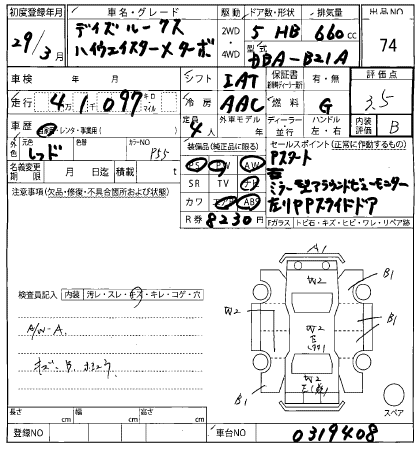 初度登録年月 車名・グレード 駆動 ドア数・形状 排気量 出品NO
29/3月 デイズルークス ハイウェイスターメターボ 2WD 4WD 5 HB 660cc 74
型式 DBA-B21A
車検 年 月 シフト IAT 保証書 有・無 評価点
走行 4万1097 キロ マイル 冷房 AAC 燃料 G 3.5
車歴 自家用・レンタ・事業用( ) 定員 4人 外車モデル年 ディーラー 並行 ハンドル 左・右 内装 B
外装 元色 レッド 色替 カラーNO P55 装備品(純正品に限る) セールスポイント(正常に作動するもの)
名義変更期限 月 日迄 自動車税 月迄済 PS PW AW Pスタート
注意事項(欠品・修復・不具合箇所および状態) SR TV ナビ ミラー型アラウンドビューモニター
カワ エアB ABS 左りPPスライドドア
R券 8230円 Fガラス トビ石・キズ・ヒビ・ワレ・リペア跡
検査員記入 内装 汚レ・スレ・キズ・キレ・コゲ・穴
A/W-A.
キズ・B.
A1
W2
B1
W2
W2
B1
B1
W2
B1
スペア
長さ cm 幅 cm 高さ cm
登録NO 車台NO 0319408